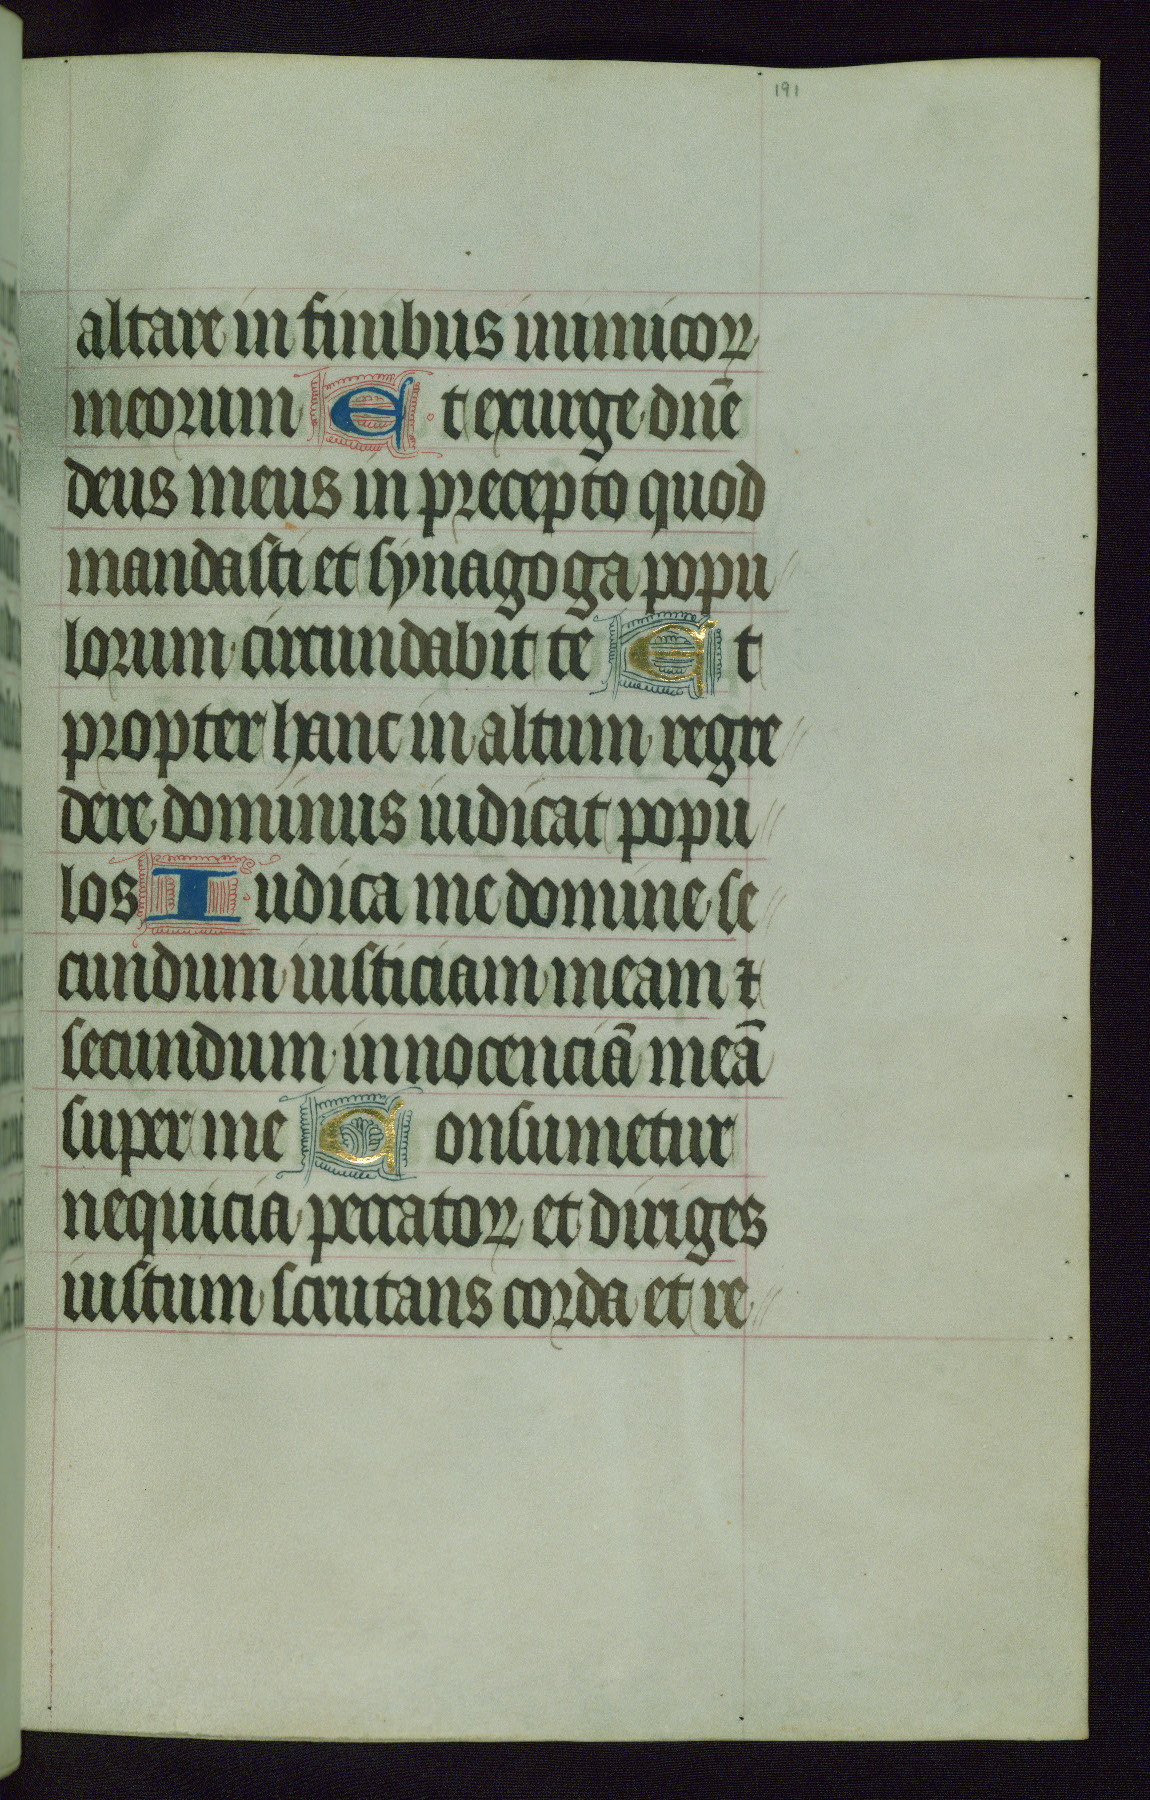 191
altare in finibus inimicoꝝ
meorum Et exurge dn̄e
deus meus in precepto quod
mandasti et synagoga popu
lorum circundabit te Et
propter hanc in altum regre
dere dominus iudicat popu
los Iudica me domine se
cundum iusticiam meam ⁊
secundum innocenciā meā
super me Consumetur
nequicia peccatoꝝ et diriges
iustum scrutans corda et re